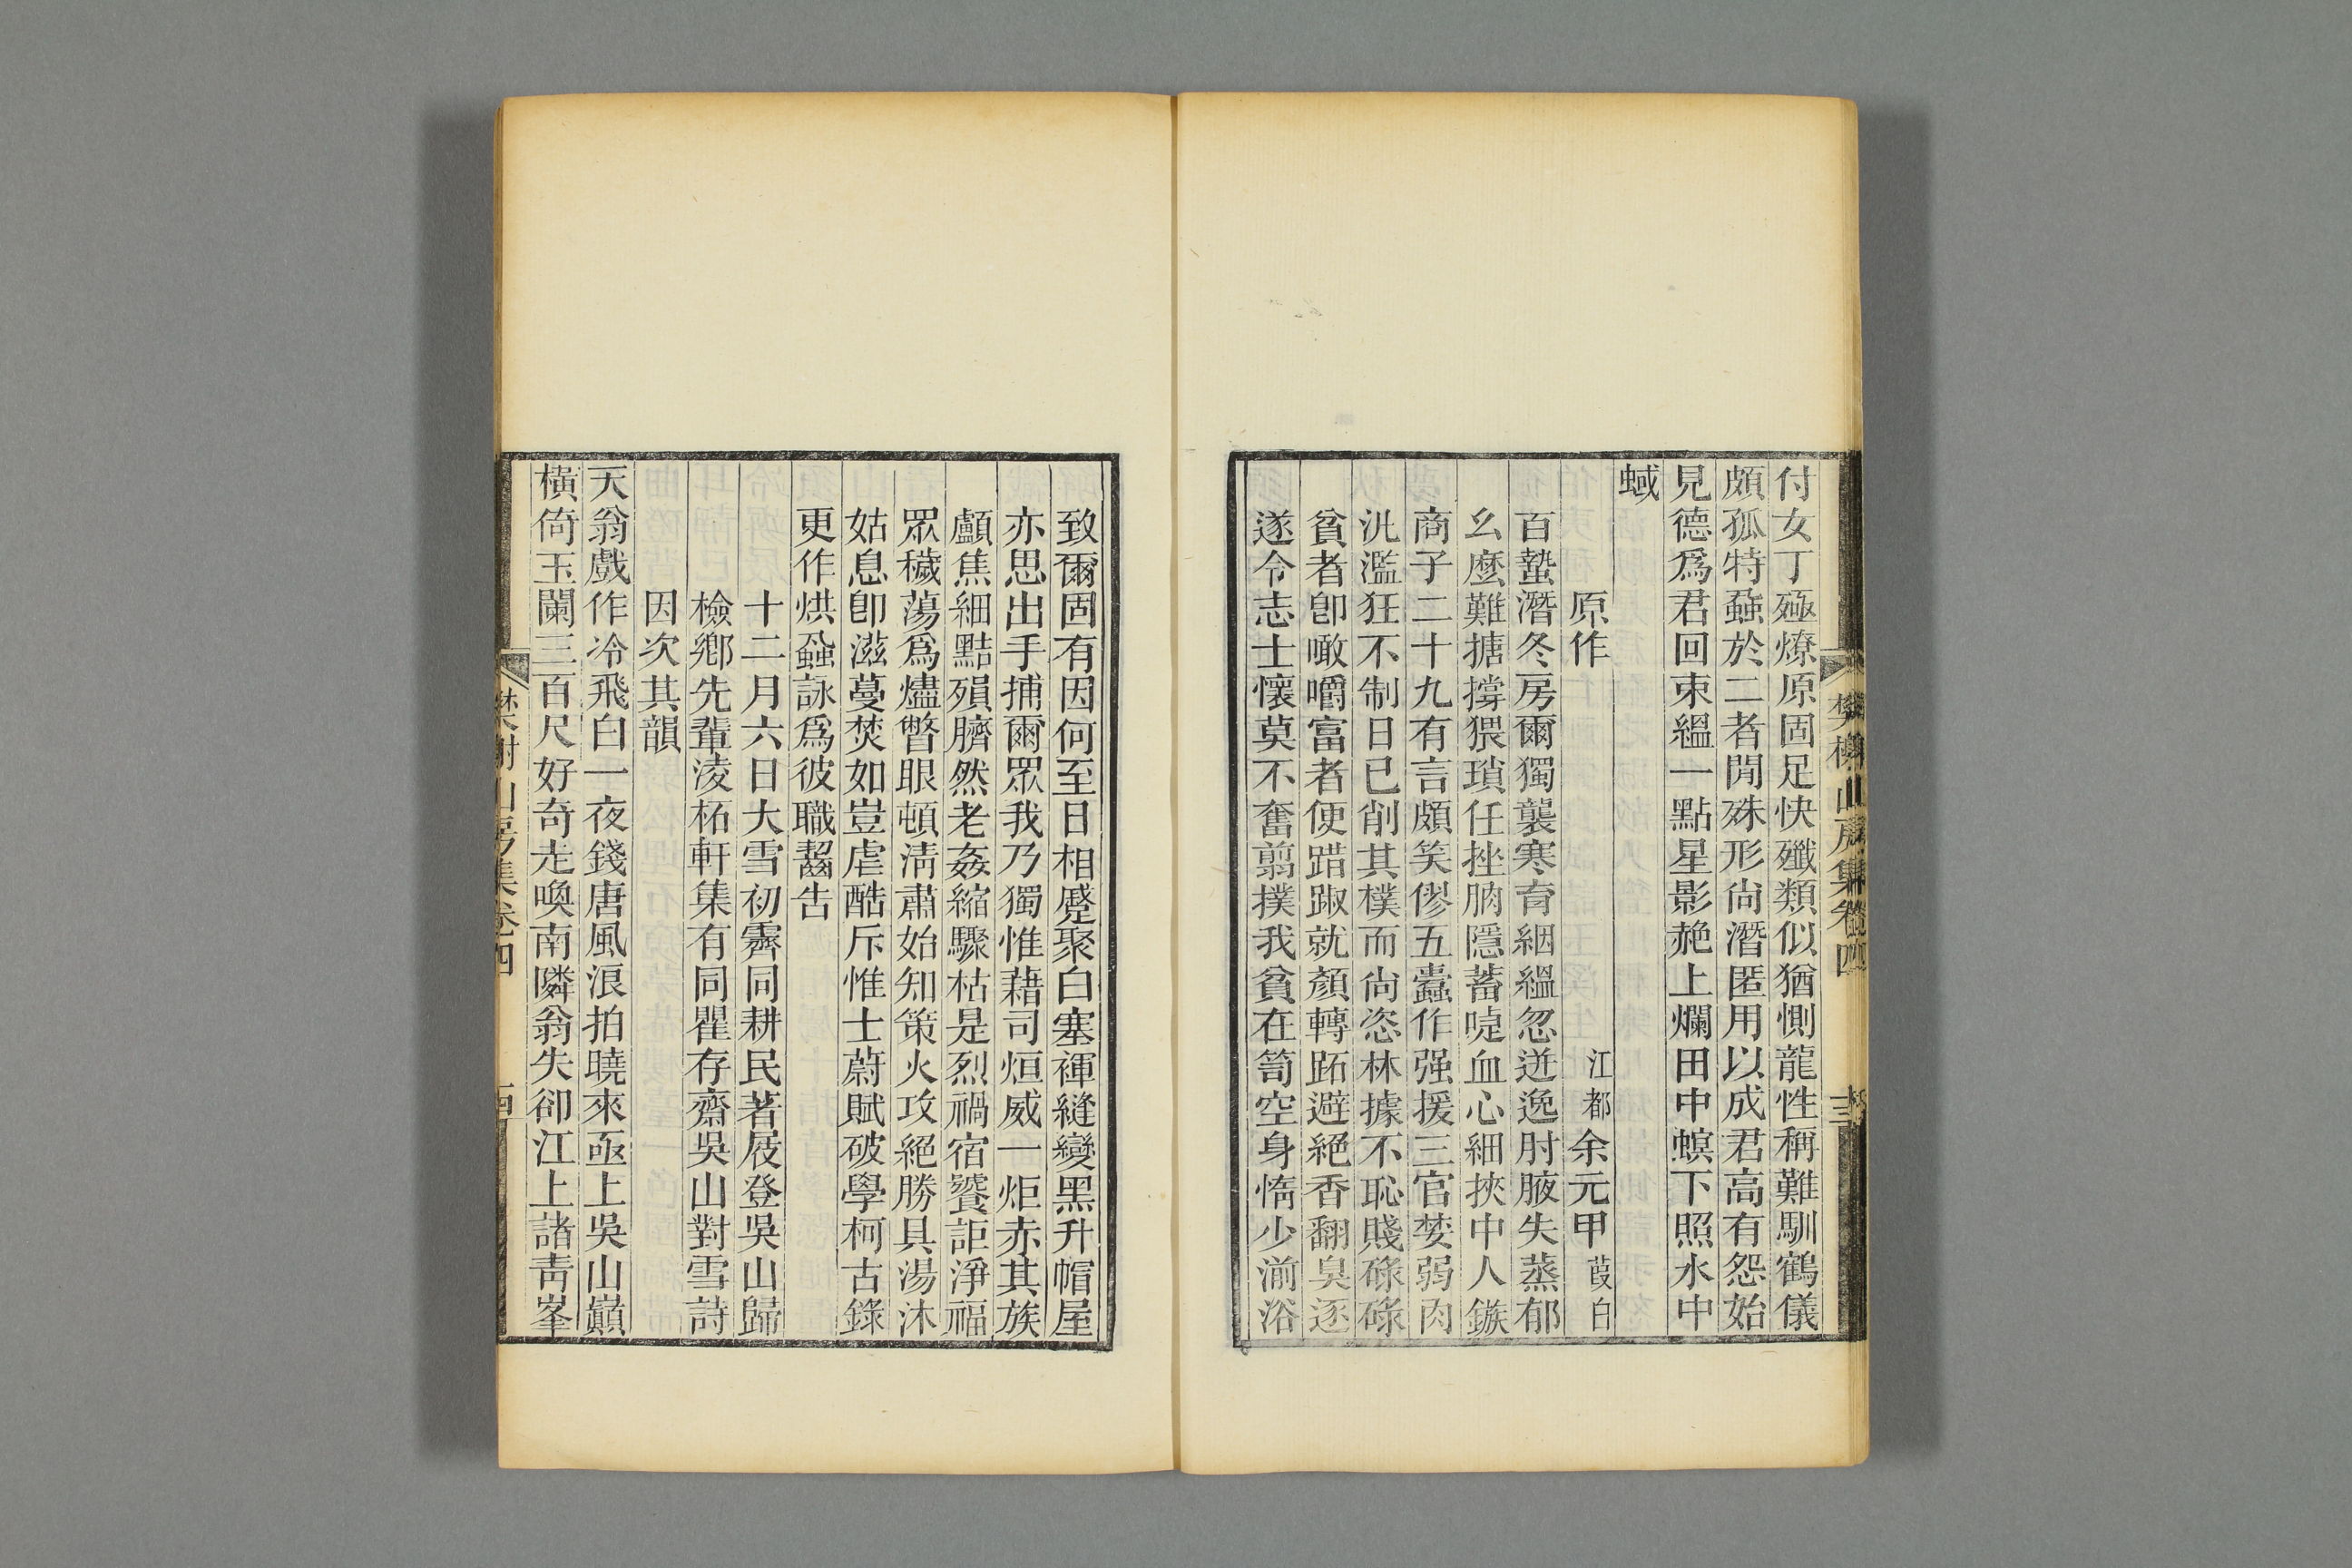 樊榭山房集卷四
付女丁殛燎原固足快殲類似猶惻龍性稱難馴鶴儀
頗孤特蝨於二者閒殊形尙潛匿用以成君高有怨始
見德爲君回束縕一點星影赩上爛田中螟下照水中
蜮
原作 江都余元甲葭白
百蟄潛冬房爾獨襲寒育絪縕忽迸逸肘腋失蒸郁
幺麼難搪撐猥瑣任挫朒隱蓄啑血心細挾中人鏃
商子二十九有言頗笑僇五蠹作强援三官婪弱肉
汎濫狂不制日已削其樸而尙恣林據不恥賤碌碌
貧者卽噉嚼富者便踖踧就顏轉跖避絕香翻臭逐
遂令志士懷莫不奮翦撲我貧在笥空身惰少湔浴
致爾固有因何至日相蹙聚白塞褌縫變黑升帽屋
亦思出手捕爾眾我乃獨惟藉司烜威一炬赤其族
顱焦細黠殞臍然老姦縮驟枯是烈禍宿饕詎淨福
眾穢蕩爲燼瞥眼頓淸肅始知策火攻絕勝具湯沐
姑息卽滋蔓焚如豈虐酷斥惟士蔚賦破學柯古錄
更作烘蝨詠爲彼職齧告
十二月六日大雪初霽同耕民著屐登吳山歸
檢鄕先輩淩柘軒集有同瞿存齋吳山對雪詩
因次其韻
天翁戲作冷飛白一夜錢唐風浪拍曉來亟上吳山巔
橫倚玉闌三百尺好奇走喚南隣翁失卻江上諸靑峯
樊榭山房集卷四